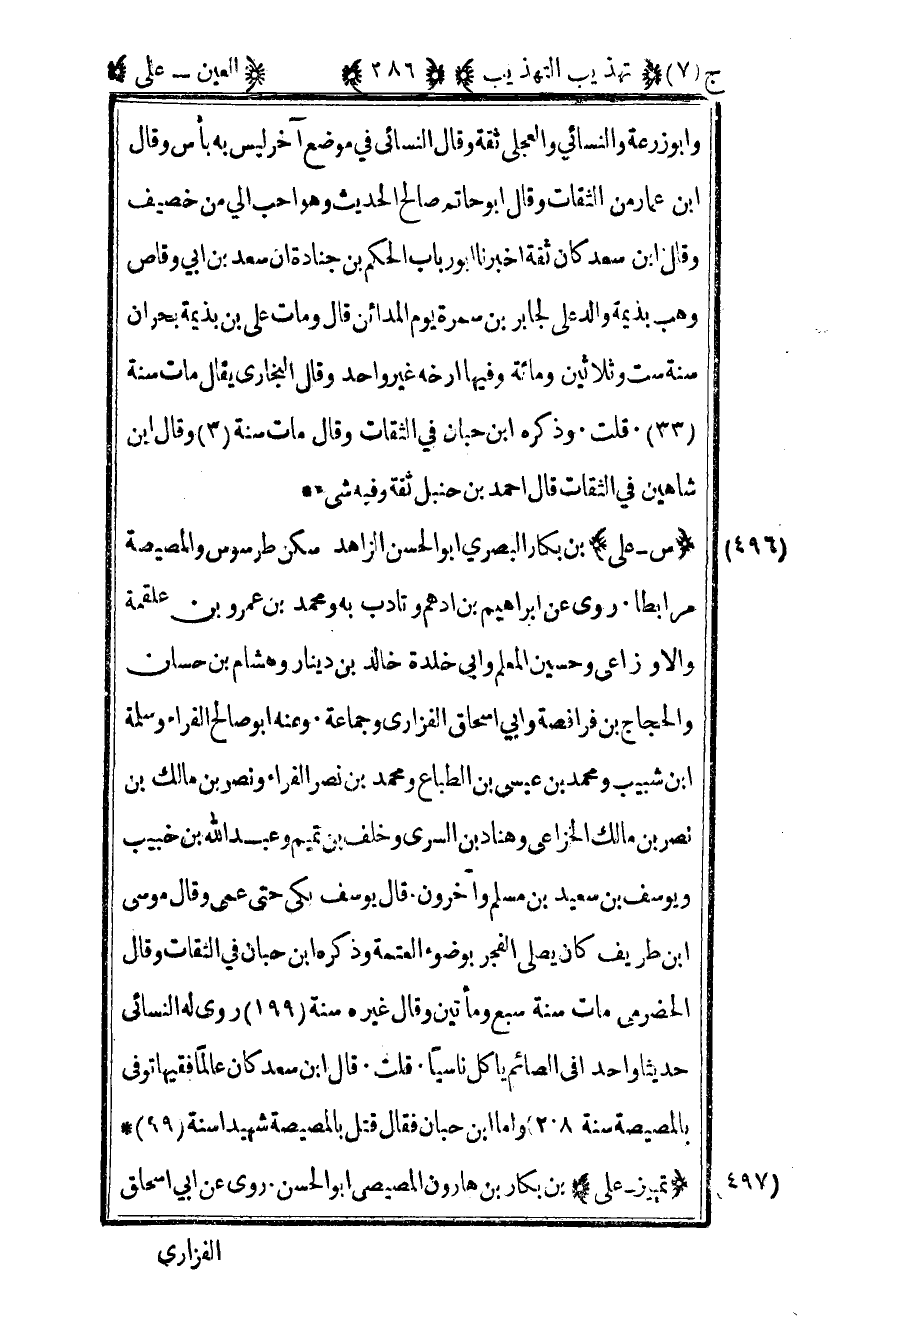 ج (٧) ﴿ تهذيب التهذيب ﴾ ﴿ ٢٨٦ ﴾ ﴿ العين ــ على ﴾
وابوزرعة والنسائي والعجلي ثقة وقال النسائى في موضع آخر ليس به بأس وقال
ابن عمار من الثقات وقال ابوحاتم صالح الحديث وهو احب الي من خصيف
وقال ابن سعد كان ثقة اخبرنا ابو رباب الحكم بن جنادة ان سعد بن ابي وقاص
وهب بذيمة والد على لجابر بن سمرة يوم المدائن قال ومات على بن بذيمة بحران
سنة ست وثلاثين ومائة وفيها ارخه غير واحد وقال البخارى يقال مات سنة
(٣٣) · قلت · وذكره ابن حبان في الثقات وقال مات سنة (٣) وقال ابن
شاهين في الثقات قال احمد بن حنبل ثقة وفيه شىء *
(٤٩٦) ﴿ س ــ على ﴾ بن بكار البصري ابوالحسن الزاهد سكن طرسوس والمصيصة
مرابطا · روى عن ابراهيم بن ادهم وتادب به ومحمد بن عمرو بن علقمة
والاوزاعى وحسين المعلم وابي خلدة خالد بن دينار وهشام بن حسان
والحجاج بن فرافصة وابي اسحاق الفزارى وجماعة · وعنه ابوصالح الفراء وسلمة
ابن شبيب ومحمد بن عيسى بن الطباع ومحمد بن نصر الفراء ونصر بن مالك بن
نصر بن مالك الخزاعى وهناد بن السرى وخلف بن تميم وعبد الله بن خبيب
ويوسف بن سعيد بن مسلم وآخرون · قال يوسف بكى حتى عمى وقال موسى
ابن طريف كان يصلى الفجر بوضوء العتمة وذكره ابن حبان في الثقات وقال
الحضرمى مات سنة سبع ومأتين وقال غيره سنة (١٩٩) روى له النسائى
حديثا واحد افى الصائم ياكل ناسيًا · قلت · قال ابن سعد كان عالمًا فقيها توفى
بالمصيصة سنة ٢٠٨) واما ابن حبان فقال قتل بالمصيصة شهيدا سنة (٩٩) *
(٤٩٧) ﴿ تمييز ــ على ﴾ بن بكار بن هارون المصيصى ابوالحسن · روى عن ابي اسحاق
الفزاري